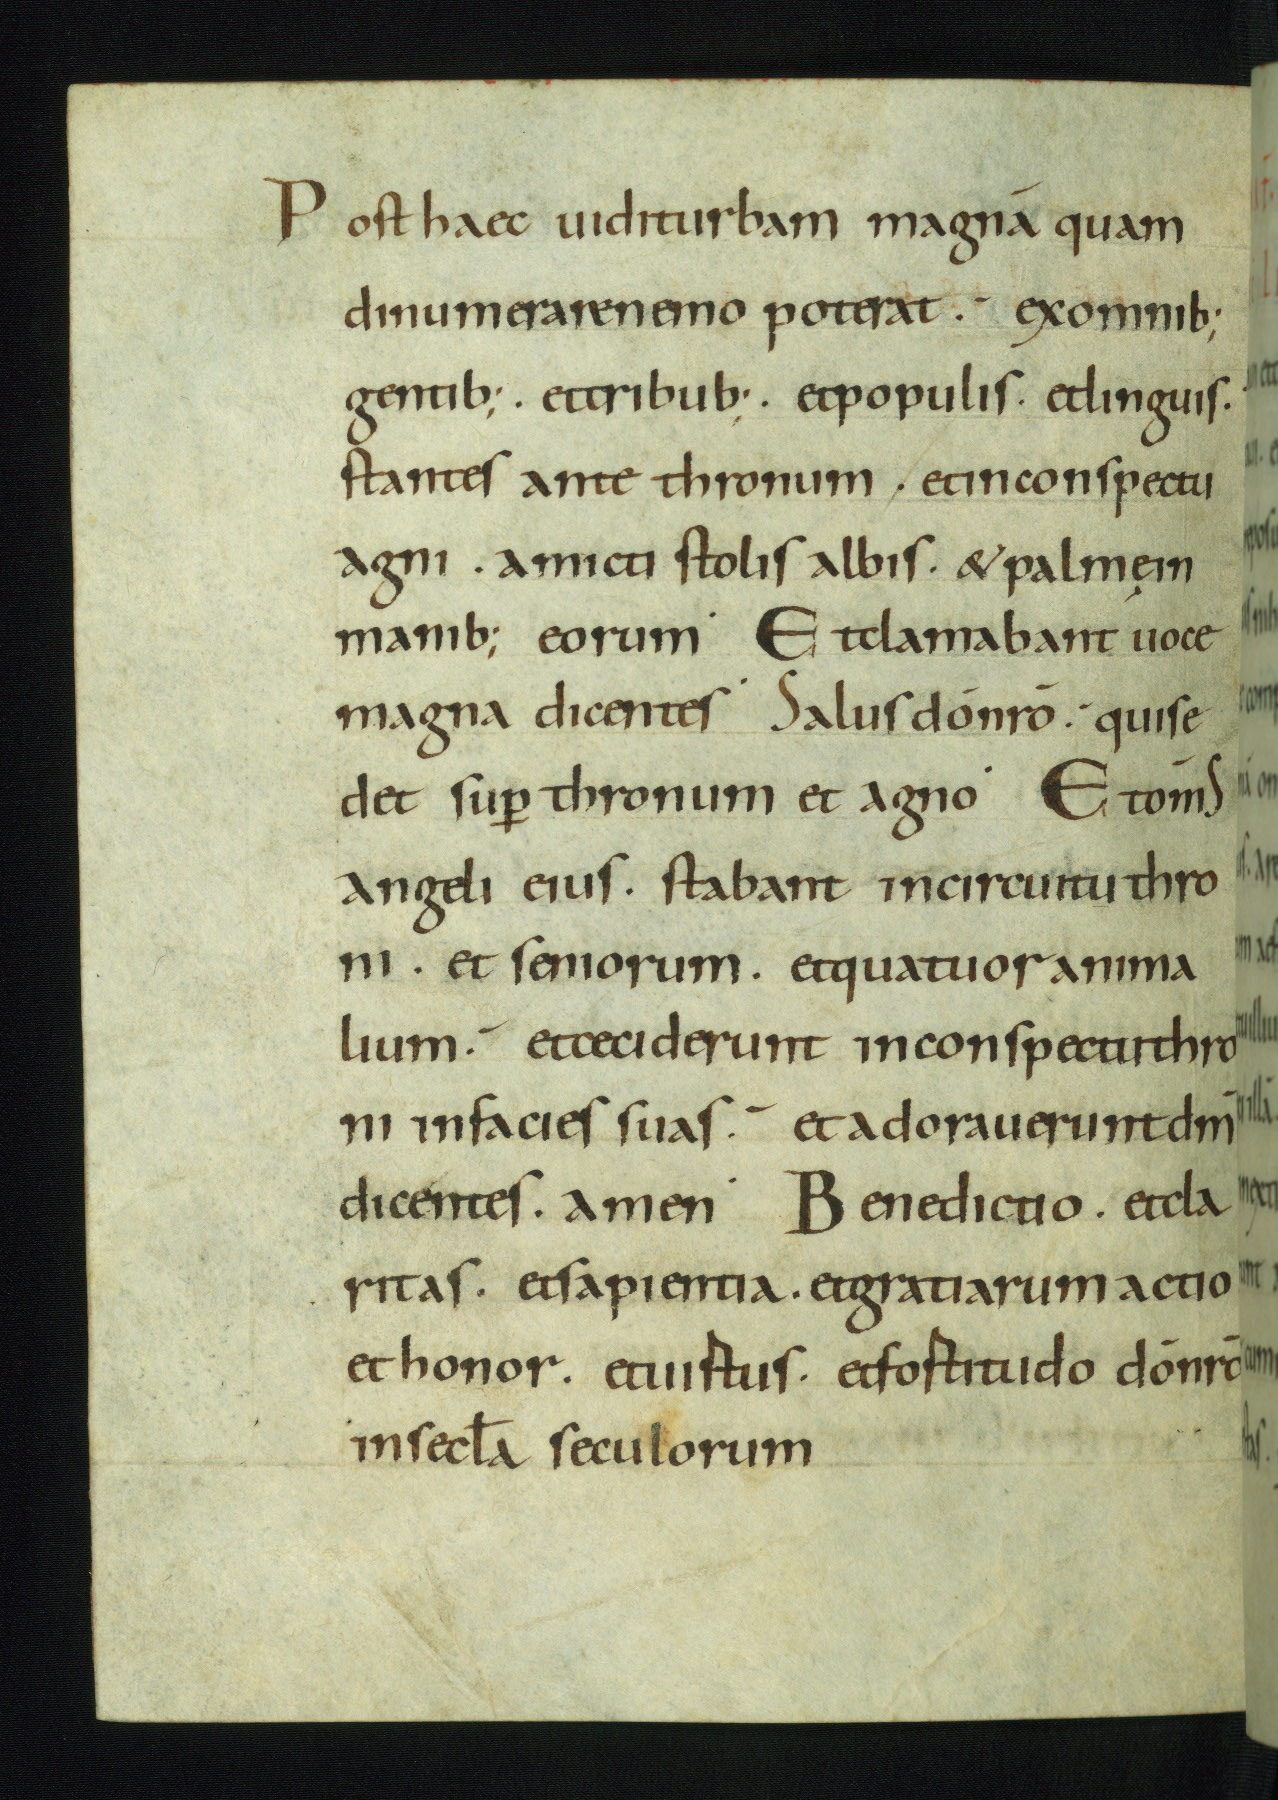 Post haec uidi turbam magnā quam
dinumerare nemo poterat . exomnib;
gentib; . ettribub; . etpopulis . etlinguis .
stantes ante thronum . etinconspectu
agni . amicti stolis albis . & palmęin
manib; eorum Etclamabant uoce
magna dicentes Salus dō nrō . quise
det sup̄ thronum et agno Et om̄s
angeli eius . stabant incircuitu thro
ni . et seniorum . etquatuor anima
lium . etceciderunt inconspectu thro
ni infacies suas . et adorauerunt dm̄
dicentes . amen Benedictio . etcla
ritas . etsapientia . etgratiarum actio
et honor . etuirtus . etfortitudo dō nrō
insecl̄a seculorum